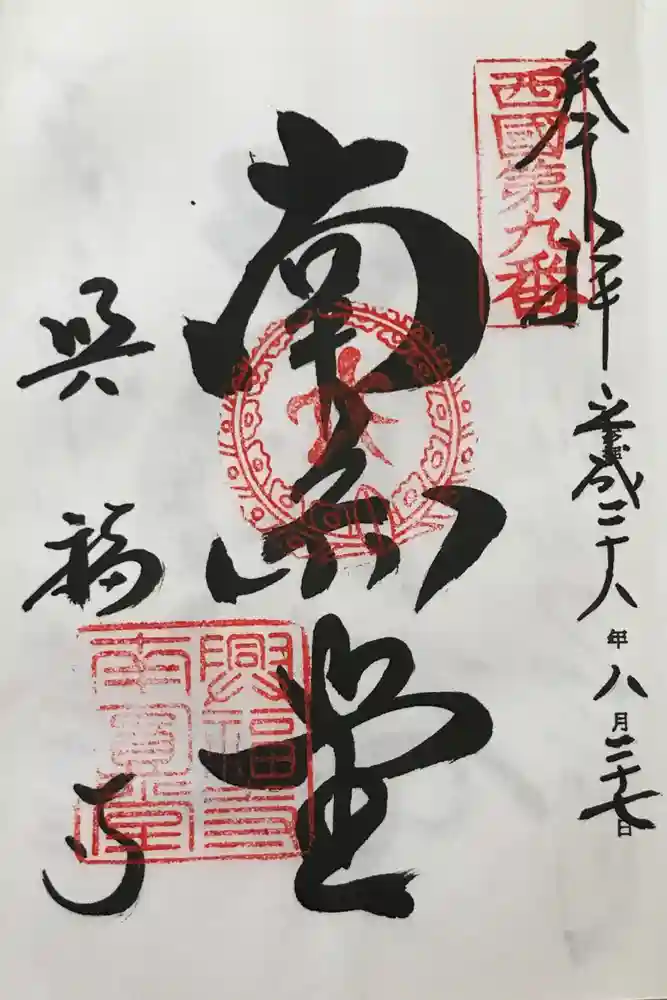 奉拝 平成二十八年八月二十七日
西國第九番
南圓堂
興福寺
興福寺
南圓堂